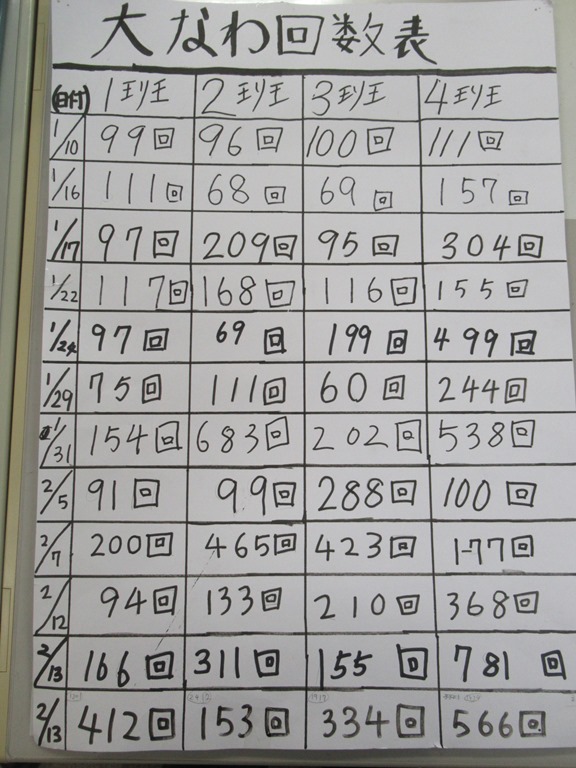 大なわ回数表
日付 1班 2班 3班 4班
1/10 99回 96回 100回 111回
1/16 111回 68回 69回 157回
1/17 97回 209回 95回 304回
1/22 117回 168回 116回 155回
1/24 97回 69回 199回 499回
1/29 75回 111回 60回 244回
1/31 154回 683回 202回 538回
2/5 91回 99回 288回 100回
2/7 200回 465回 423回 177回
2/12 94回 133回 210回 368回
2/13 166回 311回 155回 781回
2/13 412回 153回 334回 566回